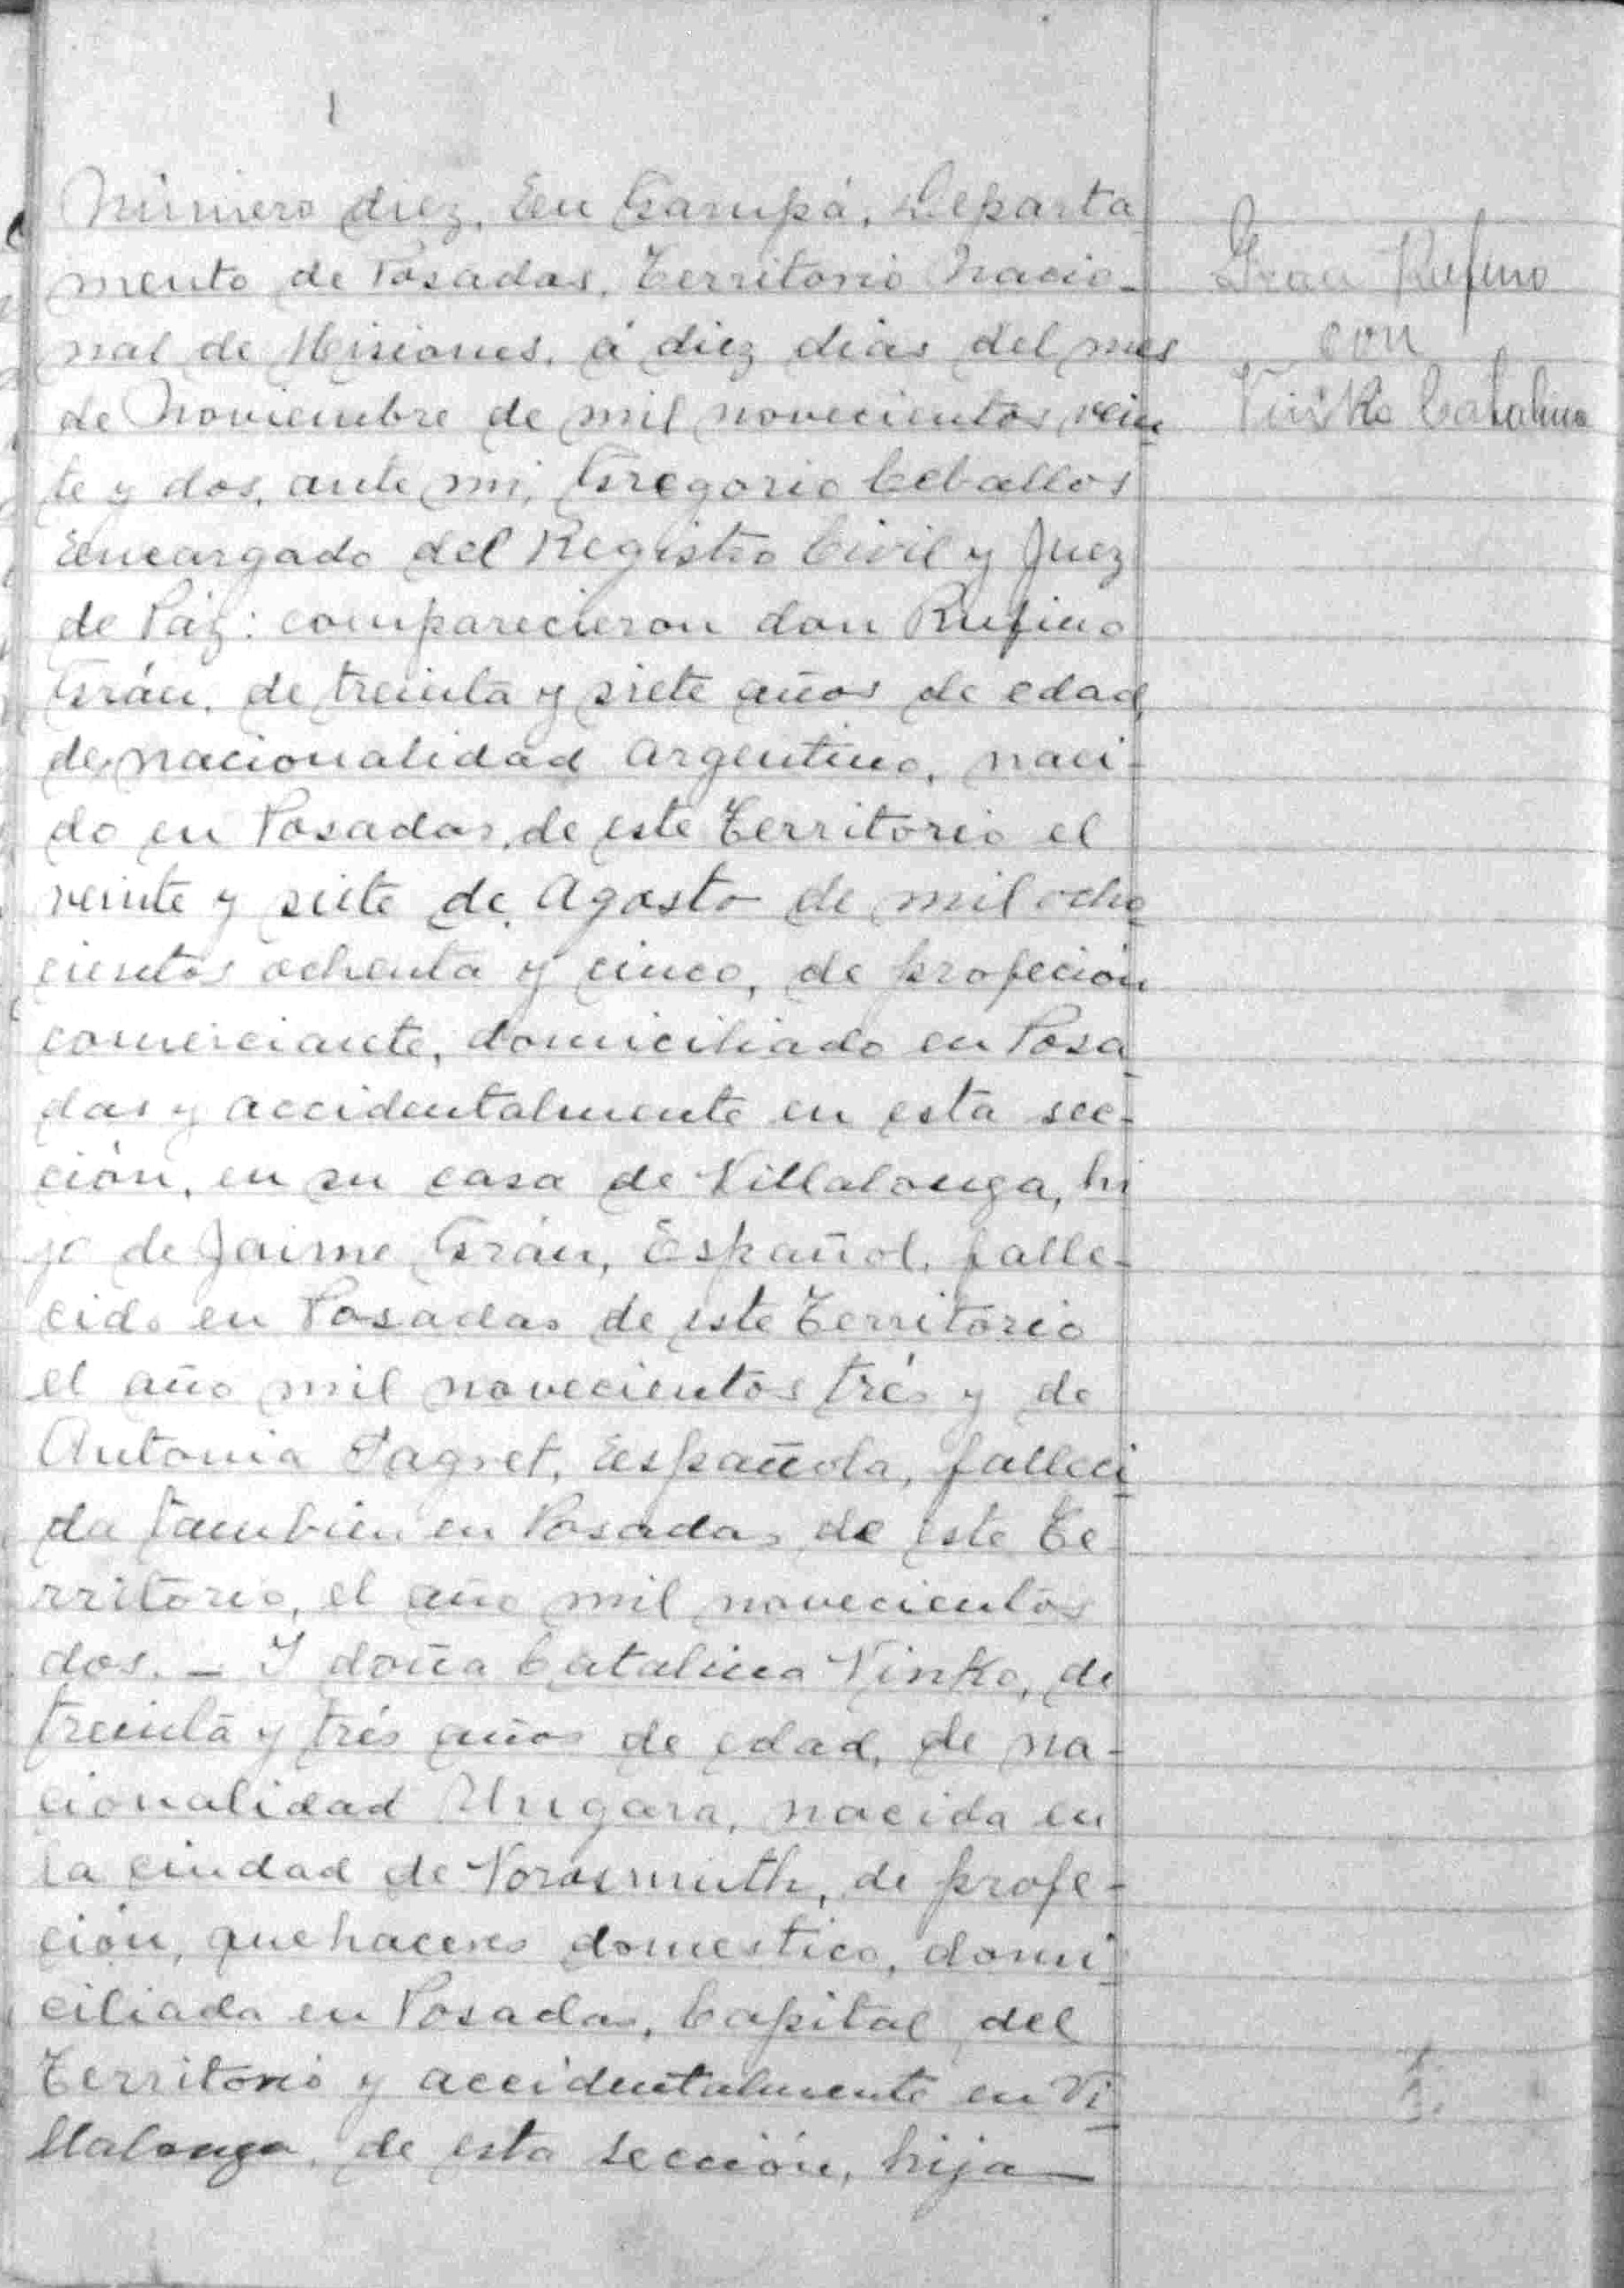 Número diez. En Garupá, Departa
mento de Posadas, Territorio Nacio-
nal de Misiones, á diez dias del mes
de Noviembre de mil novecientos vein
te y dos, ante mi, Gregorio Ceballos
Encargado del Registro Civil y Juez
de Páz: comparecieron don Rufino
Grán, de treinta y siete años de edad,
de nacionalidad Argentino, naci-
do en Posadas, de este Territorio el
veinte y siete de Agosto de mil ocho
cientos ochenta y cinco, de profeción
comerciante, domiciliado en Posa
das y accidentalmente en esta sec-
ción, en su casa de Villalonga, hi
jo de Jaime Grán, Español, falle-
cido en Posadas de este Territorio
el año mil novecientos trés y de
Antonia Sagret, Española, falleci
da tambien en Posadas de este Te
rritorio, el año mil novecientos
dos. - I doña Catalina Vinko, de
treinta y trés años de edad, de na-
cionalidad Ungara, nacida en
la ciudad de Vorosmuth, de profe-
ción, quehaceres domestico, domi
ciliada en Posadas, Capital del
Territorio y accidentalmente en Vi
llalonga, de esta sección, hija
Gran Rufino
con
Vinko Catalina